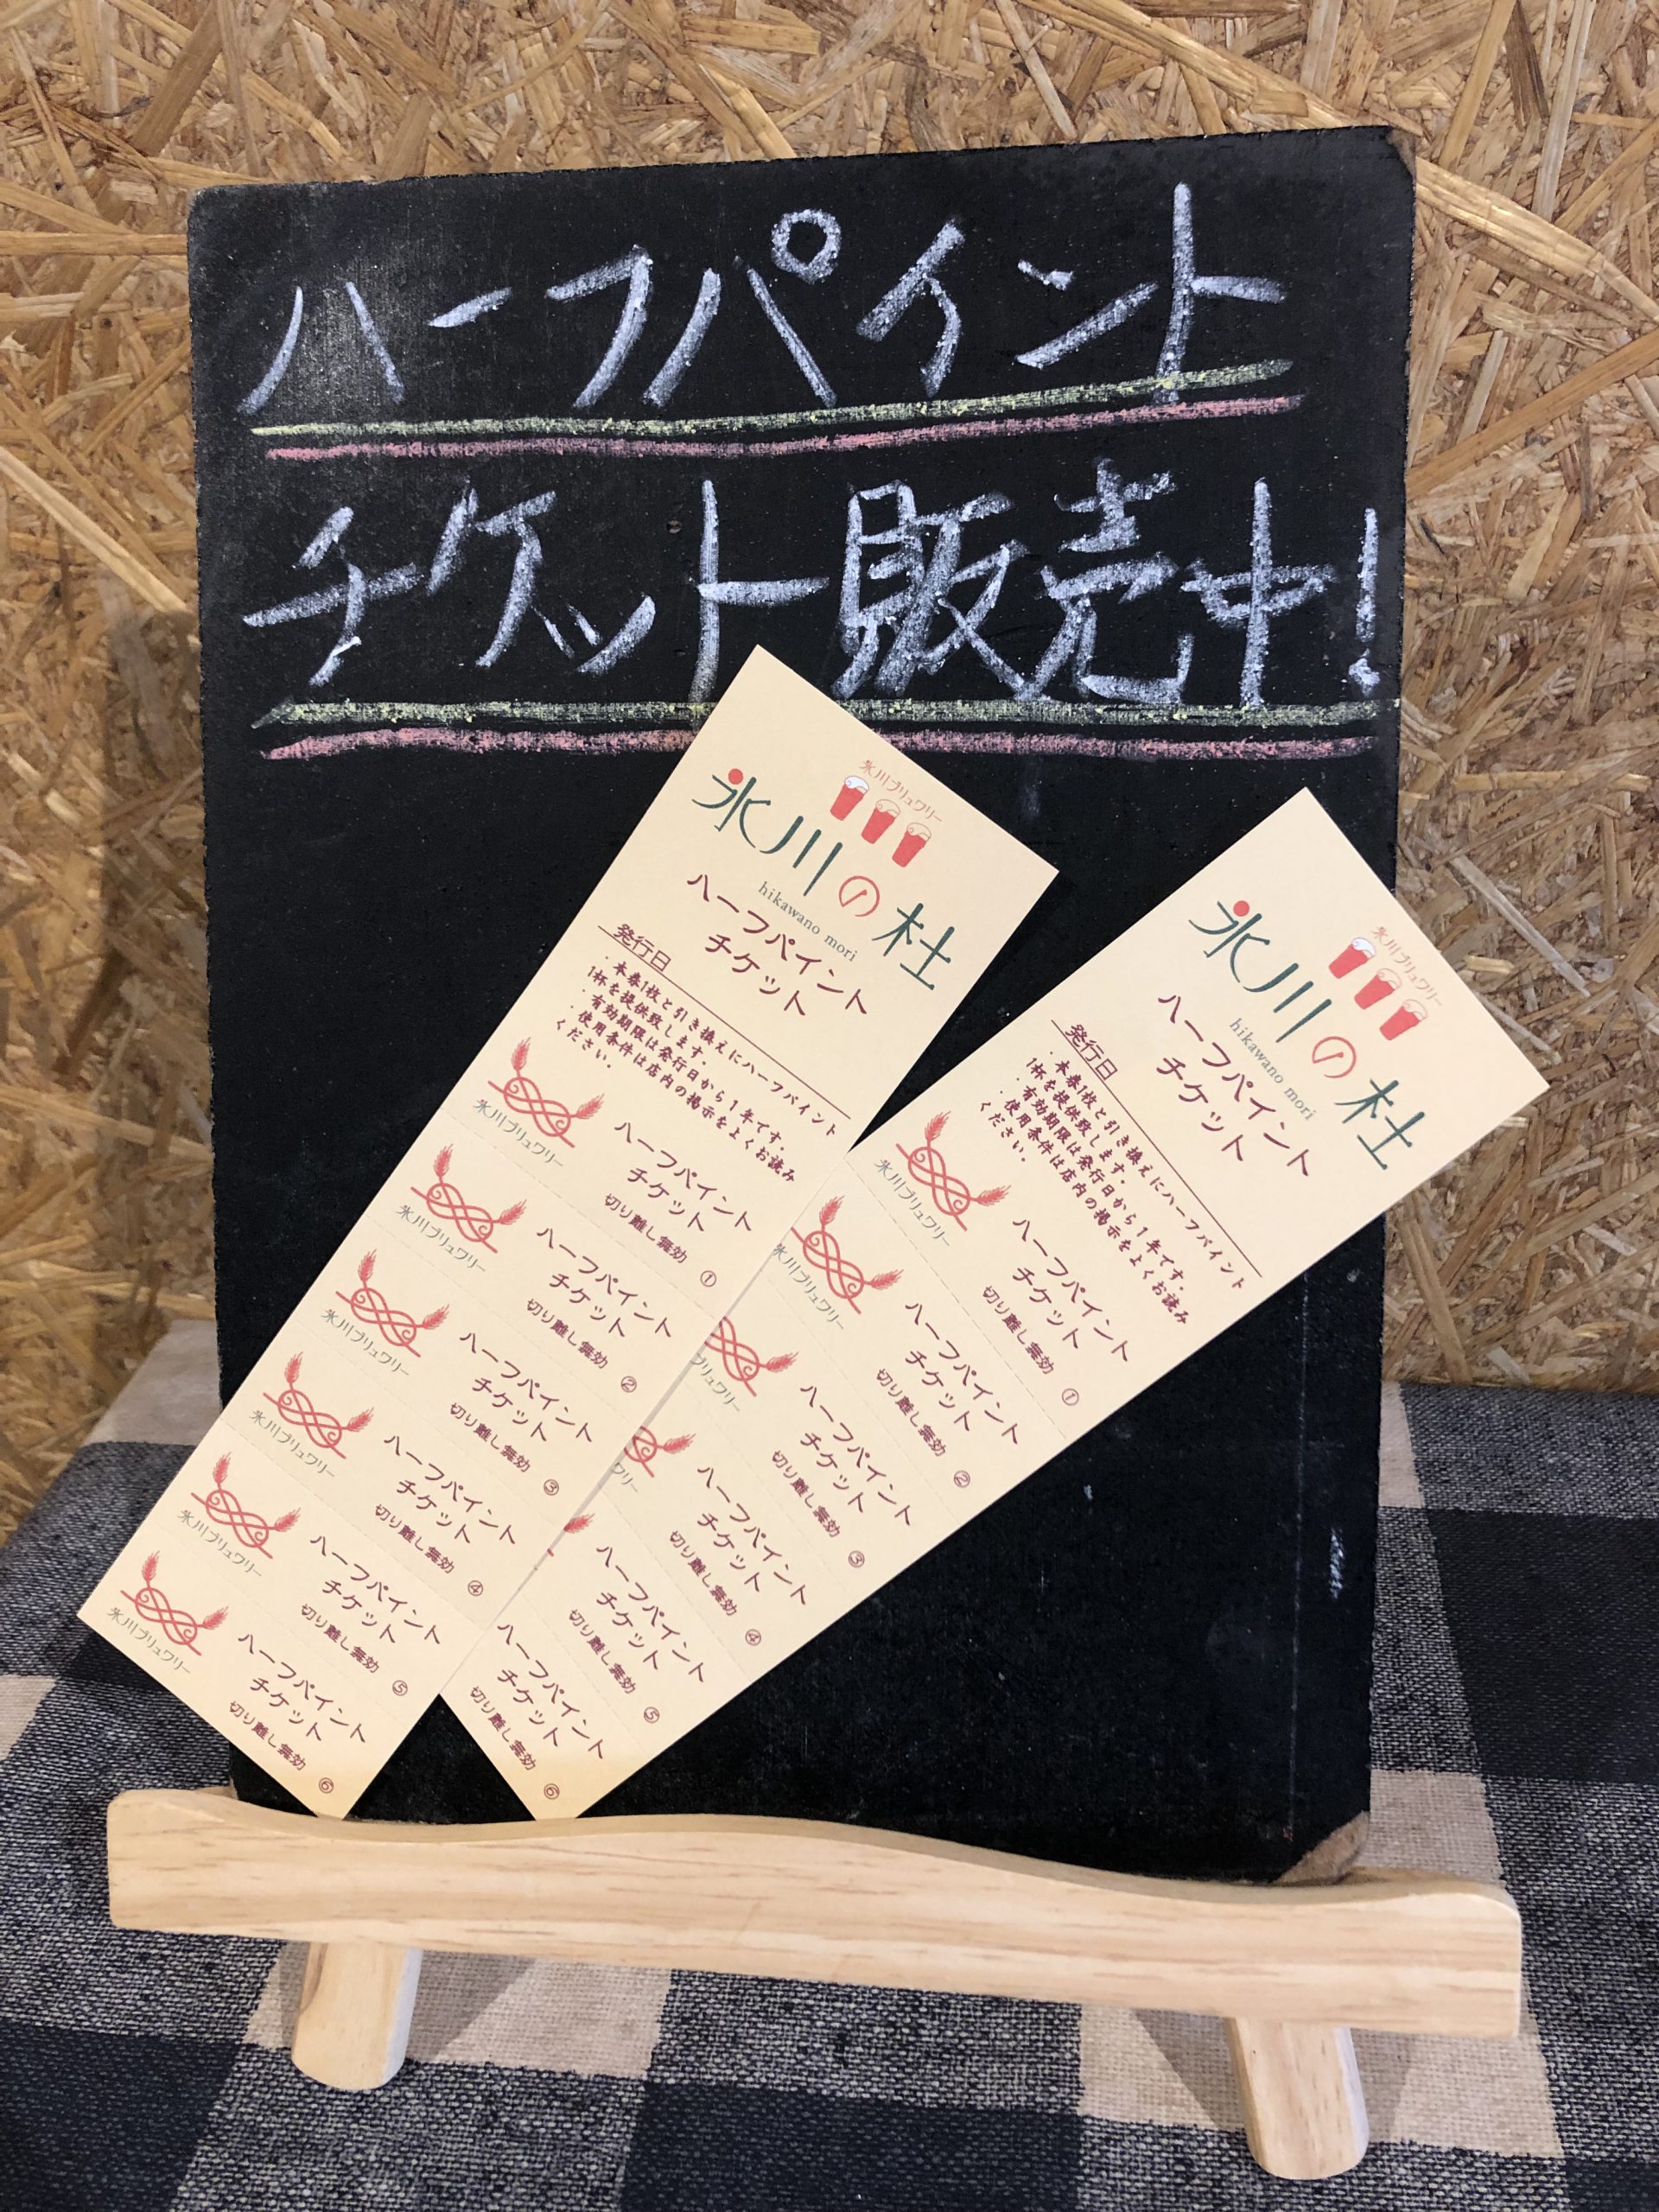 ハーフパイント
チケット販売中!
氷川ブリュワリー
氷川の杜
hikawano mori
ハーフパイント
チケット
発行日
・本券1枚と引き換えにハーフパイント
1杯を提供致します。
・有効期限は発行日から1年です。
・使用条件は店内の掲示をよくお読み
ください。
氷川ブリュワリー
ハーフパイント
チケット
切り離し無効
①
氷川ブリュワリー
ハーフパイント
チケット
切り離し無効
②
氷川ブリュワリー
ハーフパイント
チケット
切り離し無効
③
氷川ブリュワリー
ハーフパイント
チケット
切り離し無効
④
氷川ブリュワリー
ハーフパイント
チケット
切り離し無効
⑤
氷川ブリュワリー
ハーフパイント
チケット
切り離し無効
⑥
氷川ブリュワリー
氷川の杜
hikawano mori
ハーフパイント
チケット
発行日
・本券1枚と引き換えにハーフパイント
1杯を提供致します。
・有効期限は発行日から1年です。
・使用条件は店内の掲示をよくお読み
ください。
氷川ブリュワリー
ハーフパイント
チケット
切り離し無効
①
氷川ブリュワリー
ハーフパイント
チケット
切り離し無効
②
ブリュワリー
ハーフパイント
チケット
切り離し無効
③
ワリー
ハーフパイント
チケット
切り離し無効
④
ハーフパイント
チケット
切り離し無効
⑤
ハーフパイント
チケット
切り離し無効
⑥